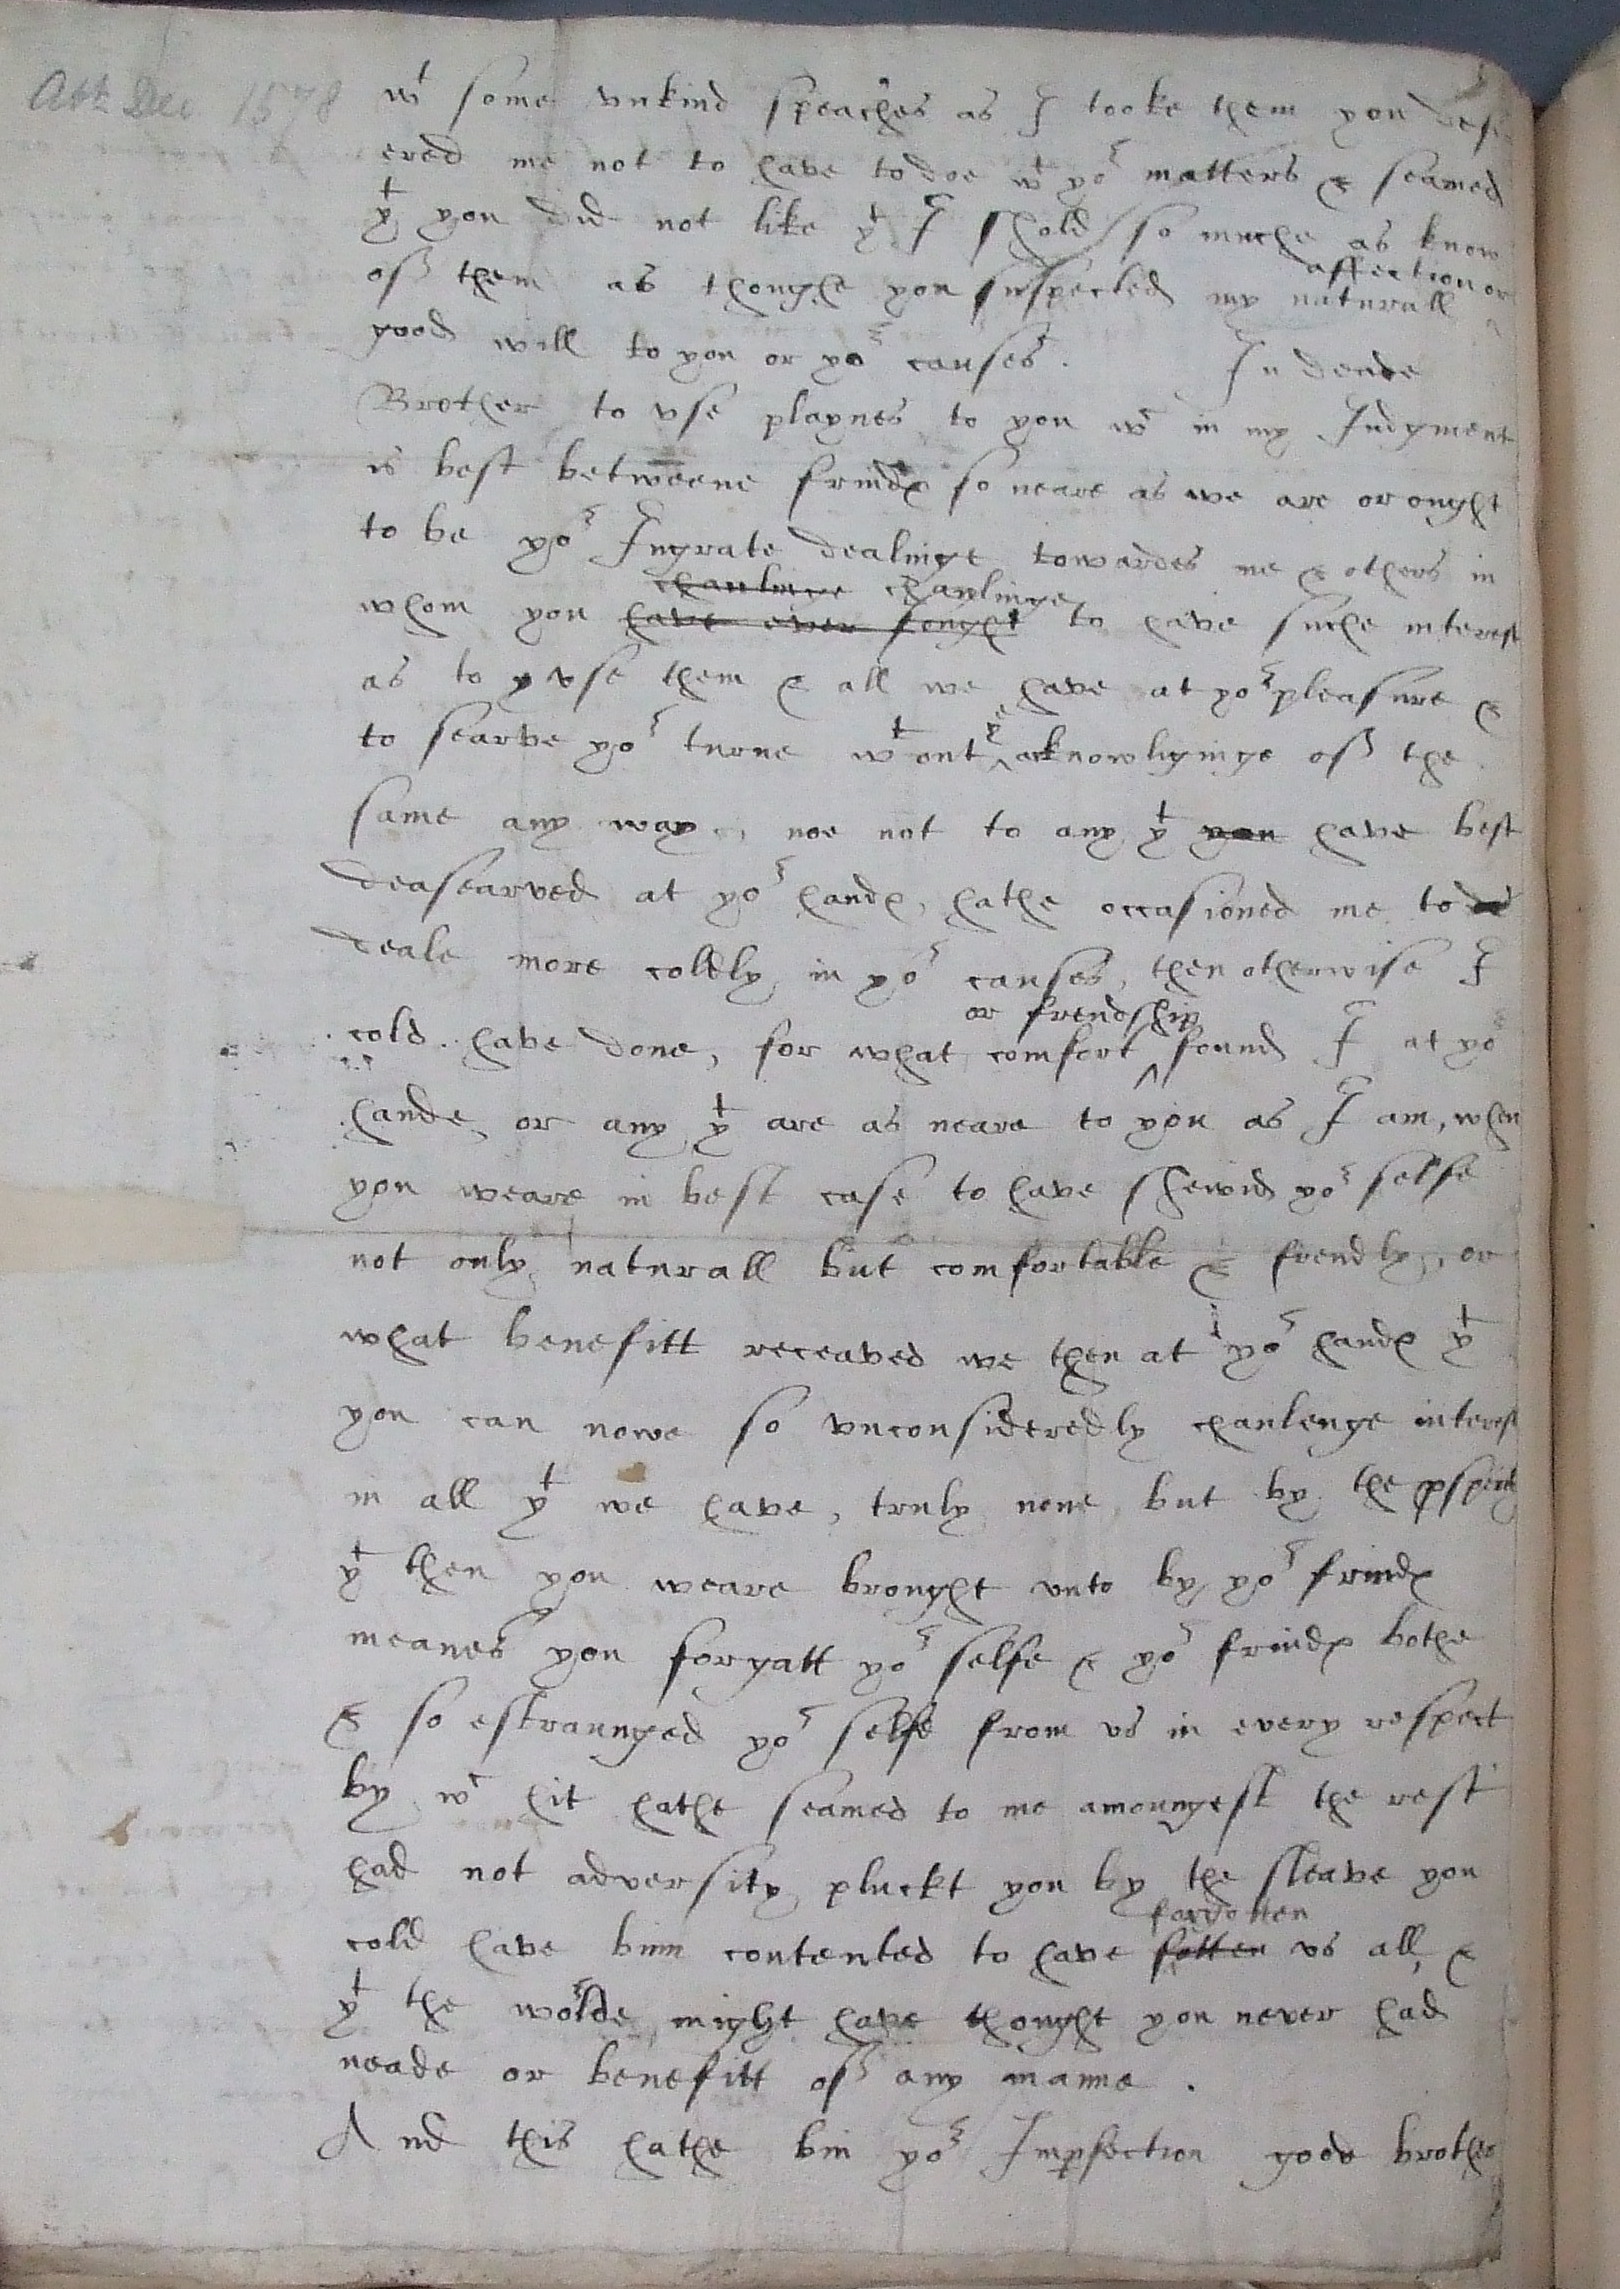 Att Dec 1578
wt some vnkind speaches as I tooke them you desi
ered me not to have to doe wt yor matters & seamed
yt you did not like yt I shold so muche as know
off them as thoughe you suspected my naturall affection or
good will to you or yor causes. In deede
Brother to vse playnes to you wc in my Iudgment
is best betweene frindes so neare as we are or ought
to be yor Ingrate dealinge towardes me & others in
chaulinge chaulinge
whom you have ever sought to have suche interest
as to y vse them & all we have at yor pleasure &
to searve yor turne wtout ye acknowliginge off the
same any way, noe not to any yt you have best
deasearved at yor handes, hathe occasioned me to de
deale more coldly in yor causes, then otherwise I
cold have done, for what comfort or frendship found I at yor
hande or any yt are as neare to you as I am, when
you weare in best case to have shewid yor selfe
not only naturall but comfortable & frendly, or
what benefitt receaved we then at yor handes yt
you can nowe so vnconsideredly chaulenge interest
in all yt we have, truly none but by the psperity
yt then you weare brought vnto by yor frindes
meanes you forgatt yor selfe & yor frindes bothe
& so estraunged yor selfe from vs in every respect
by wc hit hathe seamed to me amoungest the rest
had not adversity pluckt you by the sleave you
cold have binn contented to have fotten forgotten vs all, &
yt the worlde might have thought you never had
neade or benefitt off any manne.
And this hathe bin yor Impfection good brother